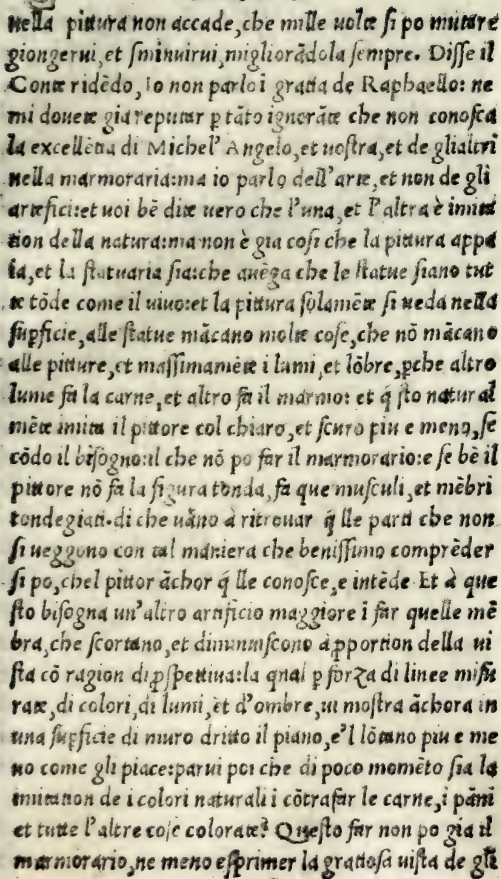 nella pittura non accade, che mille uolte si po mutare
giongerui, et sminuirui, migliorādola sempre. Disse il
Conte ridēdo, Io non parlo i gratia de Raphaello: ne
mi douete gia reputar p tāto ignorāte che non conosca
la excellētia di Michel' Angelo, et uostra, et de gli altri
nella marmoraria: ma io parlo dell'arte, et non de gli
artefici: et uoi bē dite uero che l'una, et l'altra è imita
tion della natura: ma non è gia cosi che la pittura appa
ia, et la statuaria sia: che auēga che le statue siano tut
te tōde come il uiuo: et la pittura solamēte si ueda nella
supficie, alle statue mācano molte cose, che nō mācano
alle pitture, et massimamēte i lumi, et lōbre, pche altro
lume fa la carne, et altro fa il marmo: et q̄sto natural
mēte imita il pittore col chiaro, et scuro piu e meno, se
cōdo il bisogno: il che nō po far il marmorario: e se bē il
pittore nō fa la figura tonda, fa que musculi, et mēbri
tondegiati. di che uāno a ritrouar q̄lle parti che non
si ueggono con tal maniera che benissimo comprēder
si po, chel pittor āchor q̄lle conosce, e intēde Et à que
sto bisogna un'altro artificio maggiore i far quelle mē
bra, che scortano, et diminuiscono à pportion della ui
sta cō ragion di pspettiua: la qual p forza di linee misu
rate, di colori, di lumi, et d'ombre, ui mostra āchora in
una supficie di muro dritto il piano, e'l lōtano piu e me
no come gli piace: parui poi che di poco momēto sia la
imitation de i colori naturali i cōtrafar le carne, i pāni
et tutte l'altre cose colorate? Questo far non po gia il
marmorario, ne meno esprimer la gratiosa uista de gli